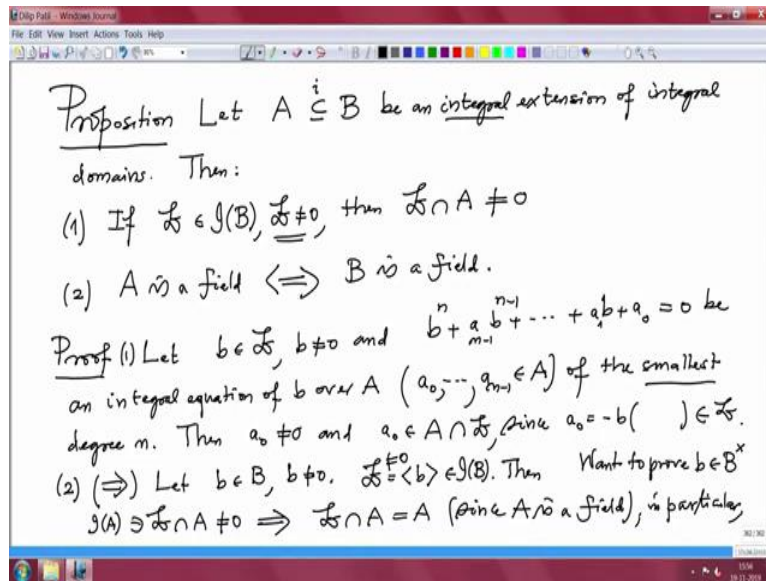 Dilip Patil - Windows Journal
File Edit View Insert Actions Tools Help
Proposition Let A ⊆ B be an integral extension of integral
domains. Then:
(1) If 𝔟 ∈ I(B), 𝔟 ≠ 0, then 𝔟 ∩ A ≠ 0
(2) A is a field ⟺ B is a field.
Proof (1) Let b ∈ 𝔟, b ≠ 0 and bⁿ + aₙ₋₁bⁿ⁻¹ + ··· + a₁b + a₀ = 0 be
an integral equation of b over A (a₀, ···, aₙ₋₁ ∈ A) of the smallest
degree n. Then a₀ ≠ 0 and a₀ ∈ A ∩ 𝔟, since a₀ = -b( ) ∈ 𝔟.
(2) (⟹) Let b ∈ B, b ≠ 0. 0 ≠ 𝔟 = <b> ∈ I(B). Then Want to prove b ∈ B^×
I(A) ∋ 𝔟 ∩ A ≠ 0 ⟹ 𝔟 ∩ A = A (since A is a field), in particular,
362 / 362
15:56
19-11-2019